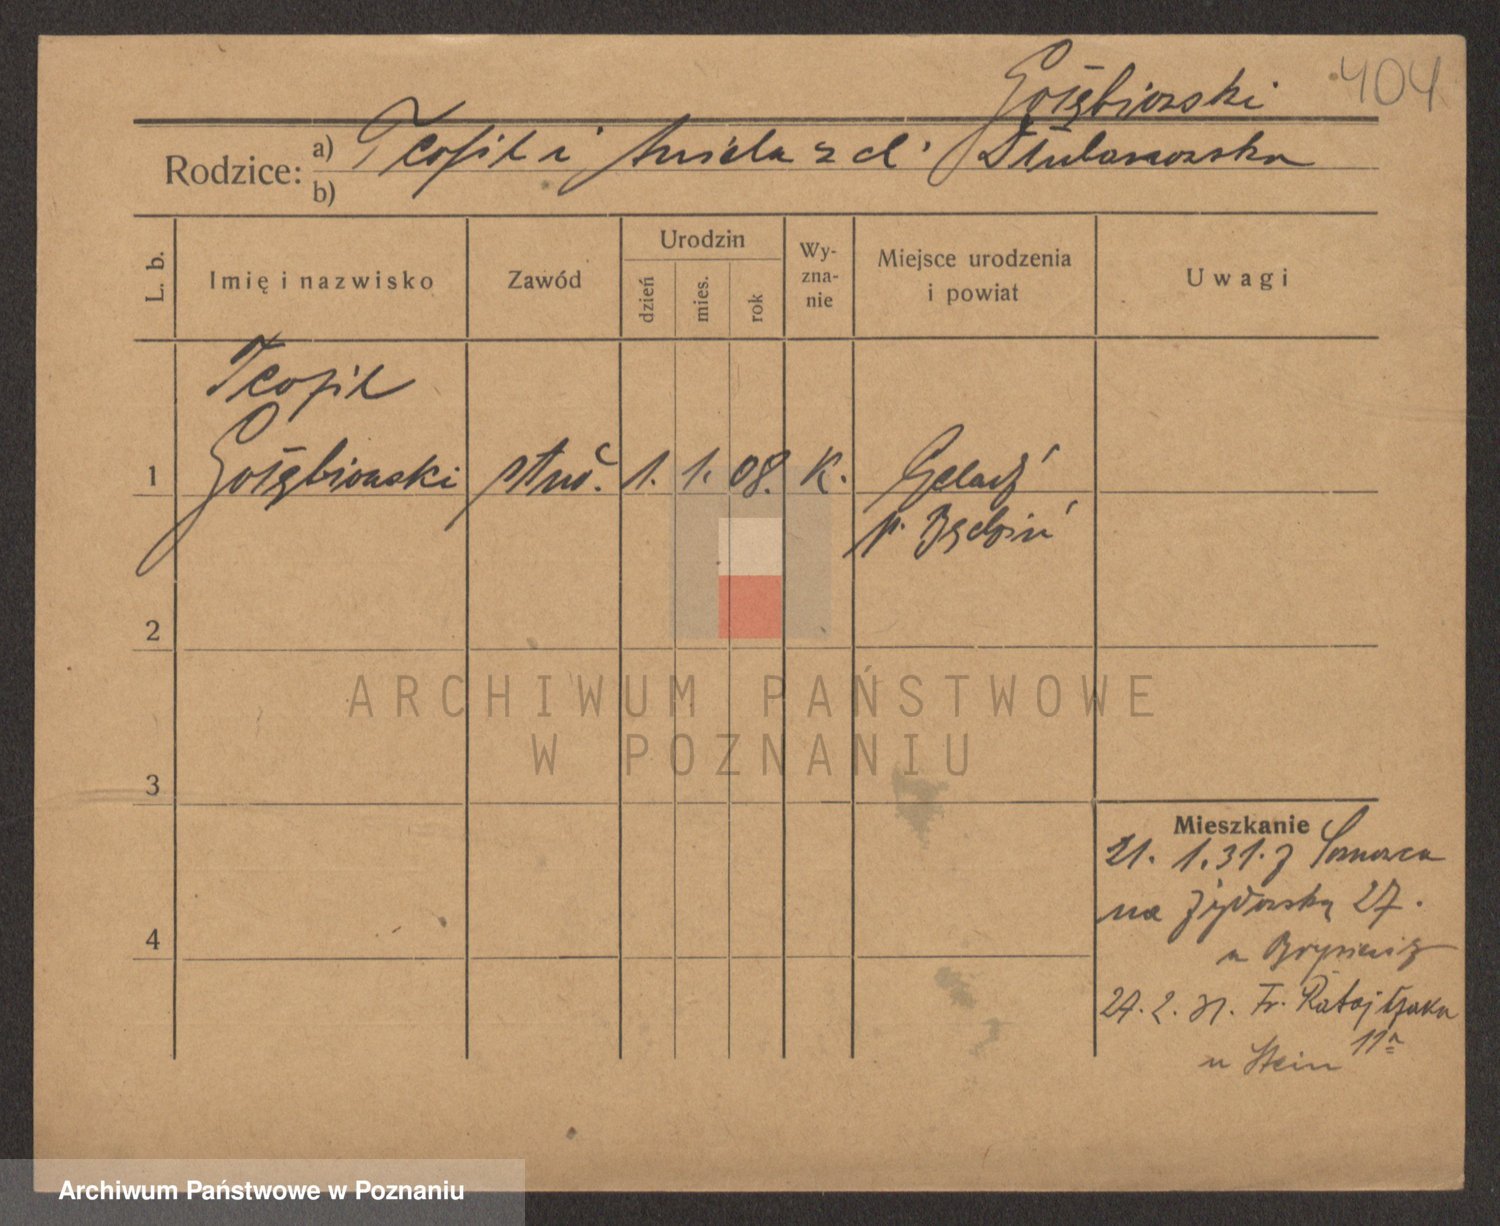 Gołębiowski 404
Rodzice: a) Teofil i Aniela z d.
b)
L. b. Imię i nazwisko Zawód Urodzin dzień mies. rok Wy-zna-nie Miejsce urodzenia i powiat Uwagi
Teofil
1 Gołębiowski stud. 1. 1. 08. K.
p. Będzin
2
ARCHIWUM PAŃSTWOWE
W POZNANIU
3
Mieszkanie
21. 1. 31. z
na Żydowską 27.
4
u
24. 2. 31. Fr. Ratajczaka
11a
u Stein
Archiwum Państwowe w Poznaniu